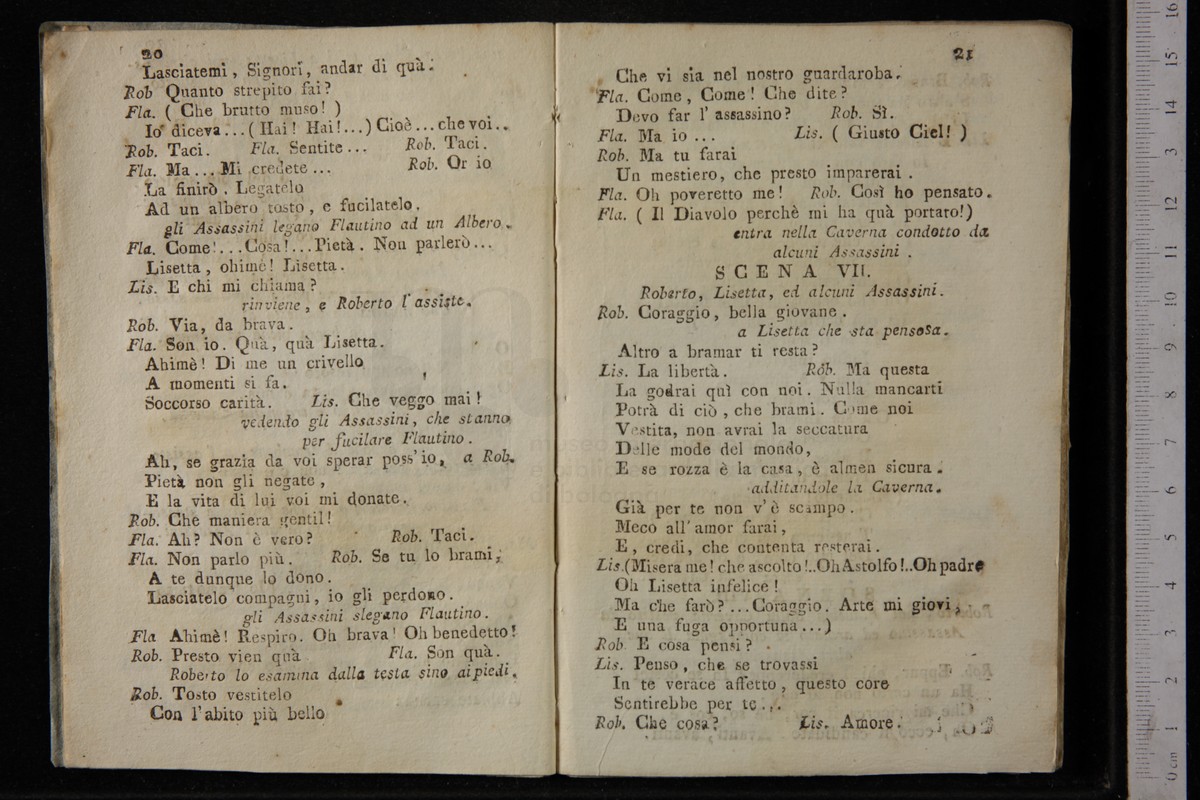 20
Lasciatemi, Signori, andar di quà.
Rob Quanto strepito fai?
Fla. ( Che brutto muso! )
Io diceva...( Hai! Hai!...) Cioè...che voi..
Rob. Taci. Fla. Sentite... Rob. Taci.
Fla. Ma... Mi credete... Rob. Or io
La finirò. Legatelo
Ad un albero tosto, e fucilatelo.
gli Assassini legano Flautino ad un Albero.
Fla. Come!...Cosa!...Pietà. Non parlerò...
Lisetta, ohimè! Lisetta.
Lis. E chi mi chiama?
rinviene, e Roberto l'assiste.
Rob. Via, da brava.
Fla. Son io. Quà, quà Lisetta.
Ahimè! Di me un crivello
A momenti si fa.
Soccorso carità. Lis. Che veggo mai!
vedendo gli Assassini, che stanno
per fucilare Flautino.
Ah, se grazia da voi sperar poss'io, a Rob.
Pietà non gli negate,
E la vita di lui voi mi donate.
Rob. Che maniera gentil!
Fla. Ah? Non è vero? Rob. Taci.
Fla. Non parlo più. Rob. Se tu lo brami,
A te dunque lo dono.
Lasciatelo compagni, io gli perdono.
gli Assassini slegano Flautino.
Fla Ahimè! Respiro. Oh brava! Oh benedetto!
Rob. Presto vien quà Fla. Son quà.
Roberto lo esamina dalla testa sino ai piedi.
Rob. Tosto vestitelo
Con l'abito più bello
21
Che vi sia nel nostro guardaroba.
Fla. Come, Come! Che dite?
Devo far l'assassino? Rob. Sì.
Fla. Ma io... Lis. ( Giusto Ciel! )
Rob. Ma tu farai
Un mestiero, che presto imparerai.
Fla. Oh poveretto me! Rob. Così ho pensato.
Fla. ( Il Diavolo perchè mi ha quà portaro!)
entra nella Caverna condotto da
alcuni Assassini.
SCENA VII.
Roberto, Lisetta, ed alcuni Assassini.
Rob. Coraggio, bella giovane.
a Lisetta che sta pensosa.
Altro a bramar ti resta?
Lis. La libertà. Rob. Ma questa
La godrai quì con noi. Nulla mancarti
Potrà di ciò, che brami. Come noi
Vestita, non avrai la seccatura
Delle mode del mondo,
E se rozza è la casa, è almen sicura.
additandole la Caverna.
Già per te non v'è scampo.
Meco all'amor farai,
E, credi, che contenta resterai.
Lis.(Misera me! che ascolto!..Oh Astolfo!..Oh padre
Oh Lisetta infelice!
Ma che farò?...Coraggio. Arte mi giovi,
E una fuga opportuna...)
Rob E cosa pensi?
Lis. Penso, che se trovassi
In te verace affetto, questo core
Sentirebbe per te...
Rob. Che cosa? Lis. Amore.